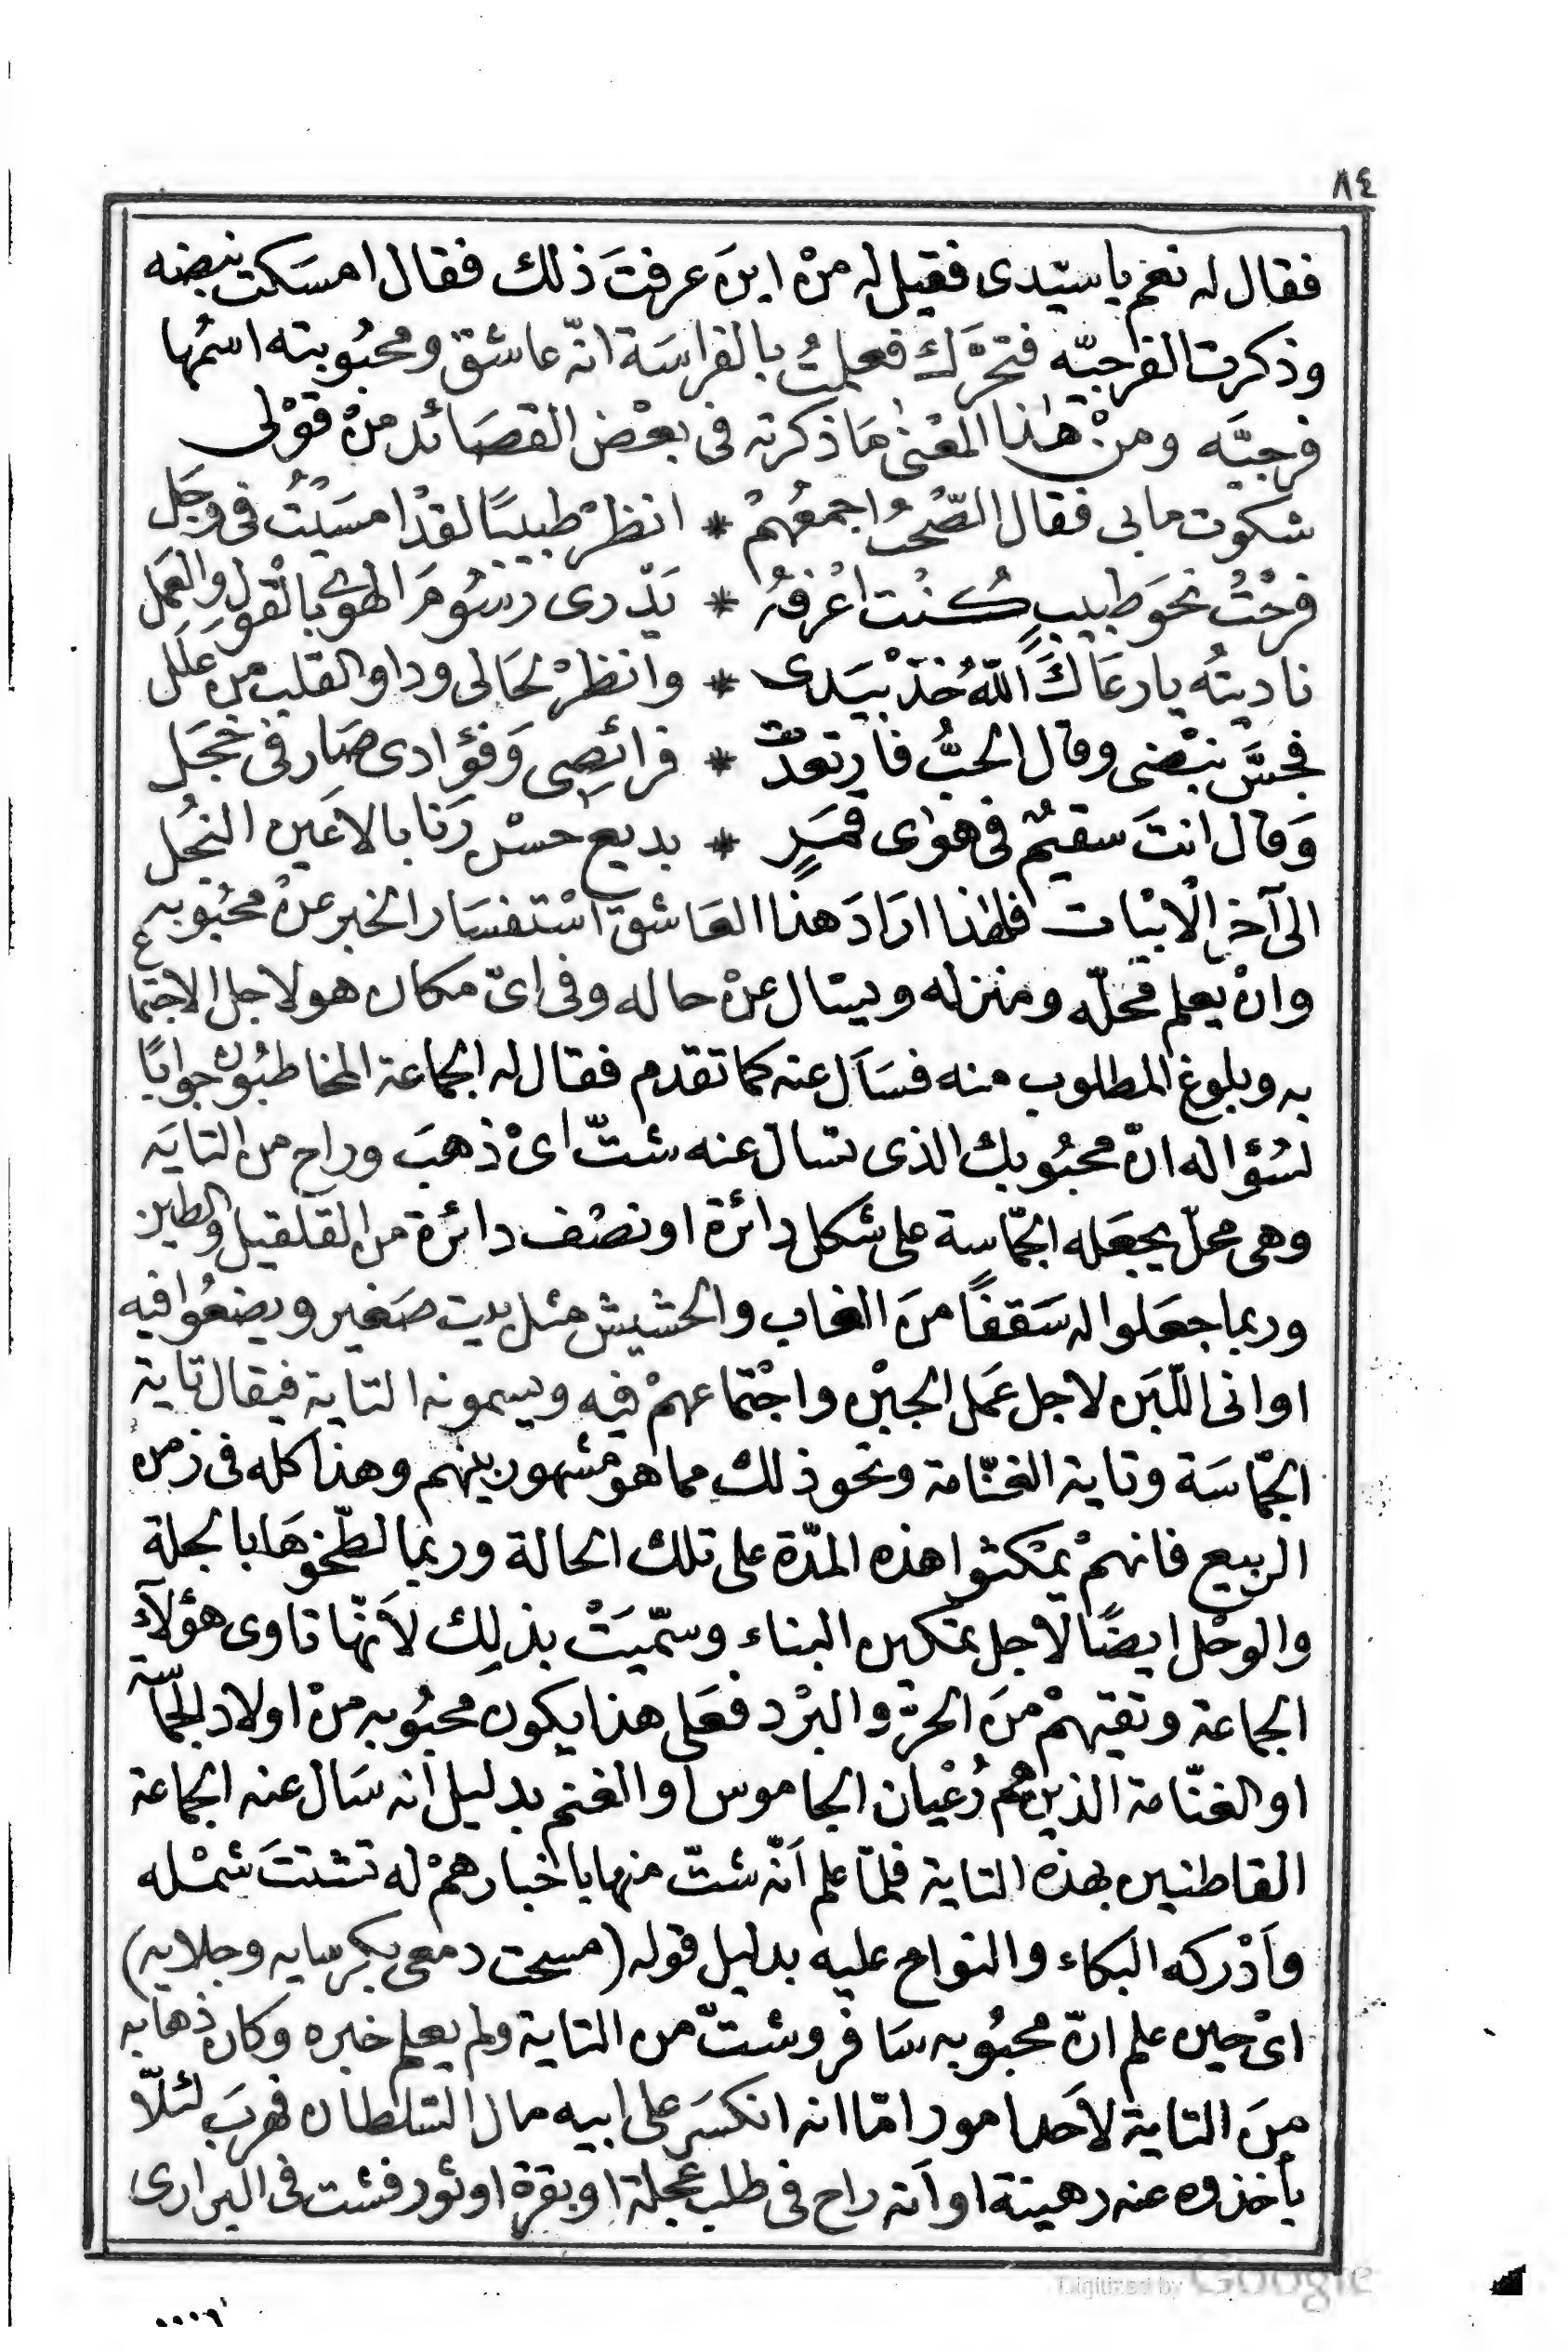 ٨٤
فقال له نعم يا سيّدى فقيل له منْ اينَ عرفتَ ذلك فقال امسَكت نبضه
وذكرت الفرجيّه فتحرّك فعلمتُ بالفراسَة انّه عاشق ومحبُوبته اسمُها
فرجيَّه ومنْ هٰذا المعْنىٰ مَا ذكرته فى بعْض القصَائد منْ قوْلى
شكوت مابى فقال الصّحْبُ اجمعُهمْ * انظرْ طبيبًا لقدْ امسَيْتَ فى وجَل
فرحْتُ نحوَ طبيبٍ كُنْت اعْرفهُ * يَدْرى رسُومَ الهوٰى بالْقولِ والعَمل
ناديتُه يا رعَاكَ اللّٰهُ خذْ بيَدى * وانظرْ لحَالى وداو القلب من علَل
فجسَّ نبْضى وقال الحبُّ فارتعدَتْ * فرائصِى وَفؤادى صَار فى خجَل
وَقال انتَ سقيمٌ فى هوٰى قمَرٍ * بديع حسْن رَنا بالاعَين النجُل
الى آخرِ الْابيَات فلهٰذا ارَادَ هذا العَاشق اسْتفسَار الخبر عنْ محبُوبه
وانْ يعلم محَلّه ومنزله ويسَال عنْ حاله وفى اىّ مكان هو لاجل الاجتماع
به وبلوغ المطلوب منه فسَأل عنه كما تقدم فقال له الجماعة المخاطبُون جوابًا
لسُؤاله انّ محبُوبك الذى تسَال عنه شتّ اىْ ذهبَ وراح من التايَه
وهى محلّ يجعَله الجمّاسة على شكل دائرة او نصْف دائرة من القلقيل والطين
وربما جعَلوا له سَقفًا منَ الغاب والحشيش مثل بيت صَغير ويضعُوا فيه
اوانى اللّبَن لاجل عَمل الجبْن واجْتماعهمْ فيه ويسمونه التاية فيقال تاية
الجمّاسَة وتاية الغنّامة ونحو ذلك مما هو مشهور بينهم وهذا كله فى زمن
الربيع فانهمْ يمْكثوا هذه المدّة على تلك الحالة وربما لطّخوهَا بالجلة
والوحْل ايضًا لاجل تمكين البناء وسمّيَتْ بذلِك لاَنهّا تاوى هؤلآء
الجماعة وتقيهمْ منَ الحرّ والبرْد فعَلى هذا يكون محبُوبه منْ اولاد الجمّآسة
او الغنّامة الذين هم رُعْيان الجاموس او الغنم بدليل أنه سَال عنه الجماعة
القاطنين بهذه التاية فلمّا علم اَنّه شتّ منها باخبارهمْ له تشتتَ شمْله
واَدْركه البكاء والنواح عليه بدليل قوله (مسحت دمعى بكرسايه وجلايه)
اىْ حين علم انّ محبُوبه سَافر وشتّ من التاية ولم يعلم خبره وكان ذهابه
منَ التاية لاَحد امور امّا انه انكسَر على ابيه مال السّلطان فهربَ لئلّا
يأخذوه عنه رهينة او اَنه راح فى طلب عجلة او بقرة او ثور فشت فى البرارى
Digitized by Google